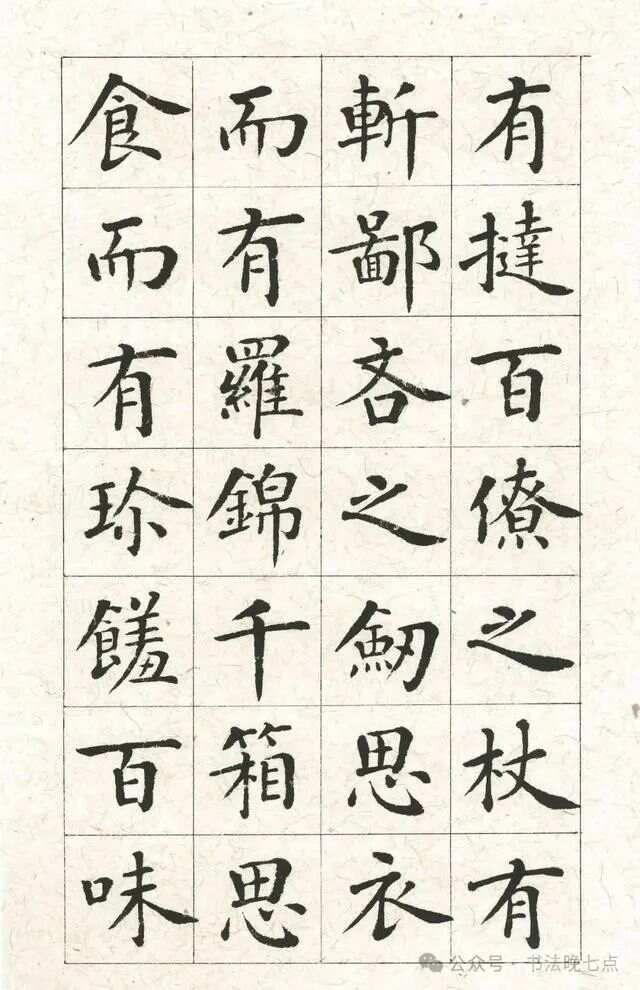 有撻百僚之杖有
斬鄙吝之劒思衣
而有羅錦千箱思
食而有珍饈百味
公众号·书法晚七点